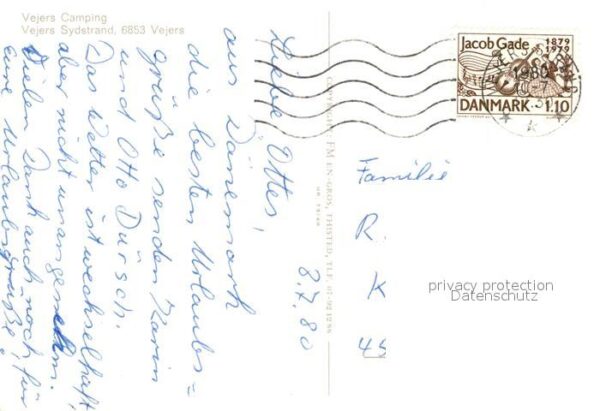 Vejers Camping
Vejers Sydstrand, 6853 Vejers
8.7.80
Liebe Ottes!
die besten Urlaubs=
aus Dänemark
grüße senden Karin
und Otto Dürsch.
Das Wetter ist wechselhaft,
aber nicht unangenehm.
Vielen Dank auch noch für
eure Urlaubsgrüße!
COPYRIGHT: FM EN-GROS, THISTED, TLF.
Jacob Gade 1879
1979
DANMARK 1.10
1980
Familie
R.
K
45
privacy protection
Datenschutz